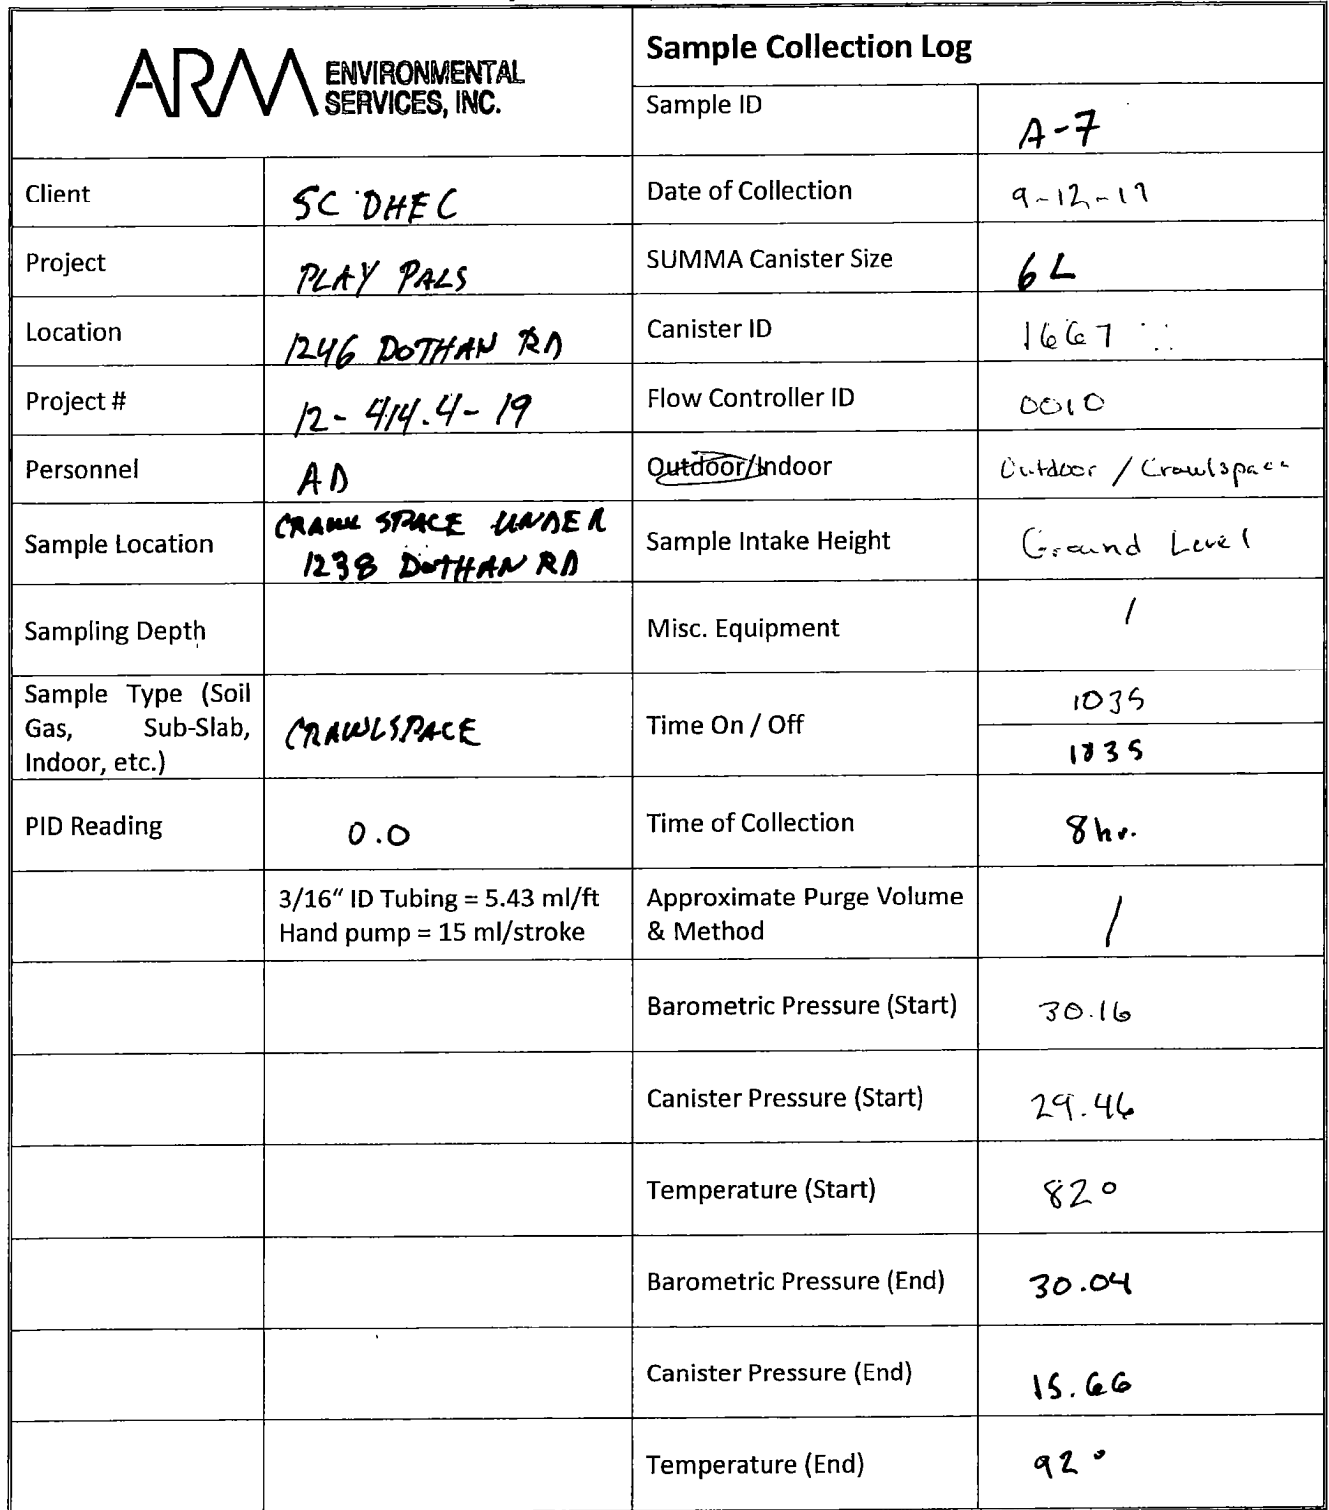 ARM ENVIRONMENTAL
SERVICES, INC.
Sample Collection Log
Sample ID
A-7
Client
SC DHEC
Date of Collection
9-12-17
Project
PLAY PALS
SUMMA Canister Size
6 L
Location
1246 DOTHAN RD
Canister ID
1667
Project #
12-414.4-19
Flow Controller ID
0010
Personnel
AD
Outdoor/Indoor
Outdoor / Crawlspace
Sample Location
CRAWL SPACE UNDER
1238 DOTHAN RD
Sample Intake Height
Ground Level
Sampling Depth
Misc. Equipment
/
Sample Type (Soil
Gas, Sub-Slab,
Indoor, etc.)
CRAWLSPACE
Time On / Off
1035
1835
PID Reading
0.0
Time of Collection
8hr.
3/16" ID Tubing = 5.43 ml/ft
Hand pump = 15 ml/stroke
Approximate Purge Volume
& Method
/
Barometric Pressure (Start)
30.16
Canister Pressure (Start)
29.46
Temperature (Start)
82°
Barometric Pressure (End)
30.04
Canister Pressure (End)
15.66
Temperature (End)
92°